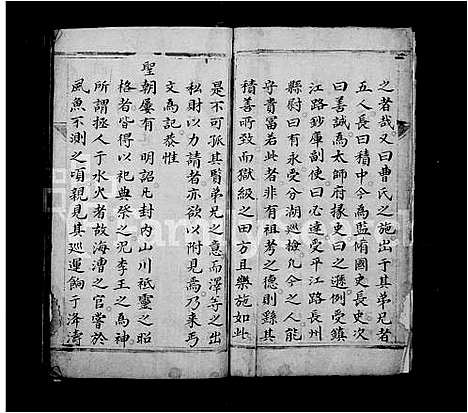 之者哉又曰曹氏之施出于其弟兄者
五人長曰積中今為監脩國史長史次
曰善誠為太師府掾史曰之遜例受鎮
江路鈔庫副使曰必達受平江路長州
縣尉曰有永受分湖巡檢凡今之人能
守貴富若此者非有祖考之德則縣其
積善所致而獄級之田方且樂施如此
是不可孤其賢弟兄之意而澤等之出
私財以力請者亦欲以附見焉乃來丐
文為記恭惟
聖朝屢有 明詔凡封內山川祗靈之昭
格者皆得以祀典祭之況李王之為神
所謂拯人于水火者故海漕之官嘗於
風魚不測之頃親見其巡運餉于洚濤